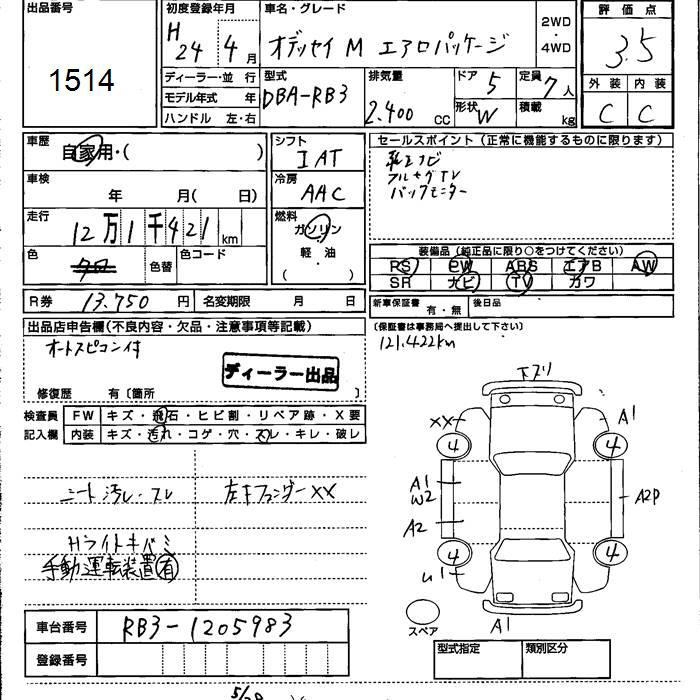 出品番号
1514
初度登録年月
H 24 年 4 月
車名・グレード
オデッセイ M エアロパッケージ
2WD
・
4WD
評価点
3.5
外装 内装
C C
ディーラー・並 行
モデル年式 年
ハンドル 左・右
型式
DBA-RB3
排気量
2.400 cc
ドア 5
形状 W
定員 7人
積載 kg
車歴
自家用・( )
車検
年 月( 日)
走行
12万1千421km
色
色替
色コード
シフト
IAT
冷房
AAC
燃料
ガソリン
軽・油
( )
セールスポイント(正常に機能するものに限ります)
フルセグTV
バックモニター
装備品(純正品に限り○をつけてください)
RS PW ABS エアB AW
SR ナビ TV カワ
R券 13.750 円
名変期限 月 日
新車保証書 有・無
後日品
(保証書は事務局へ提出して下さい)
121.422km
出品店申告欄(不良内容・欠品・注意事項等記載)
ディーラー出品
修復歴 有〔箇所 〕
検査員
記入欄
FW キズ・飛石・ヒビ割・リペア跡・X要
内装 キズ・汚れ・コゲ・穴・スレ・キレ・破レ
シート汚レ・スレ
左右フェンダーXX
Hライトキバミ
手動運転装置(有)
車台番号 RB3-1205983
登録番号
下スリ
XX
A1
4
4
A1
W2
A2
A2P
4
4
U1
A1
スペア
型式指定 類別区分